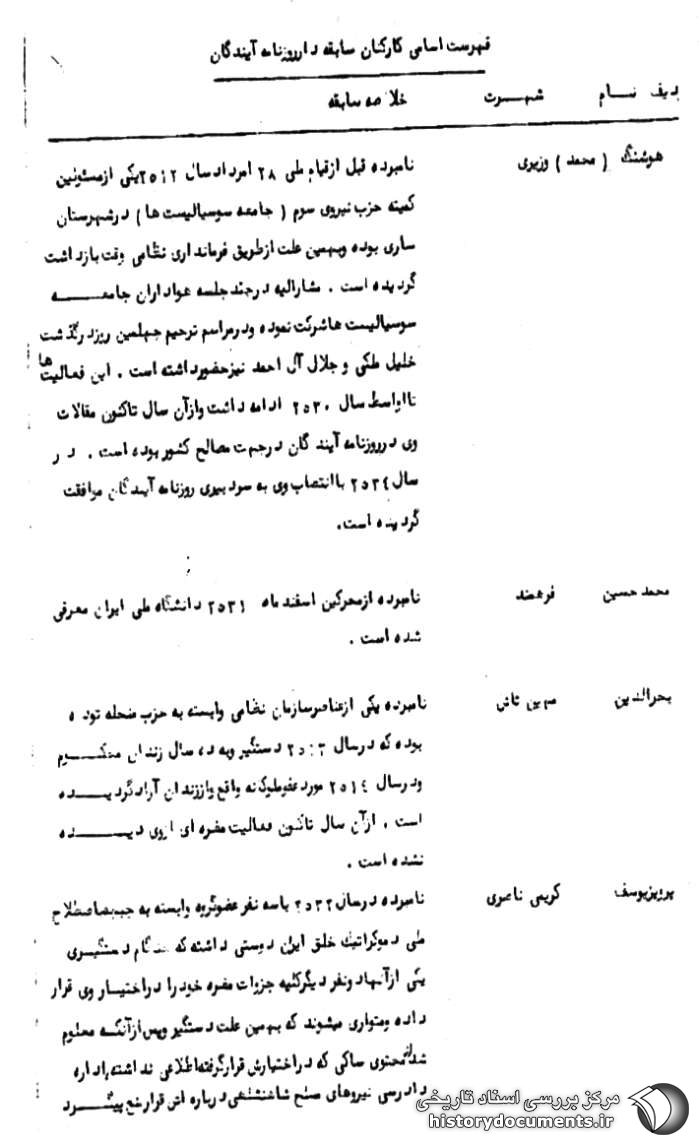 فهرست اسامی کارکنان سابقه دار روزنامه آیندگان
ردیف نام شهرت خلاصه سابقه
هوشنگ ( محمد ) وزیری نامبرده قبل از قیام ملی ۲۸ امرداد سال ۲۵۱۲ یکی از مسئولین
کمیته حزب نیروی سوم ( جامعه سوسیالیست ها ) در شهرستان
ساری بوده وبهمین علت از طریق فرمانداری نظامی وقت بازداشت
گردیده است . مشارالیه در چند جلسه هواداران جامعه
سوسیالیست ها شرکت نموده ودر مراسم ترحیم چهلمین روز درگذشت
خلیل ملکی و جلال آل احمد نیز حضور داشته است . این فعالیت ها
تا اواسط سال ۲۵۳۰ ادامه داشت واز آن سال تاکنون مقالات
وی در روزنامه آیندگان در جهت مصالح کشور بوده است . در
سال ۲۵۳۴ با انتصاب وی به سردبیری روزنامه آیندگان موافقت
گردیده است .
محمد حسین فرهمند نامبرده از محرکین اسفند ماه ۲۵۳۱ دانشگاه ملی ایران معرفی
شده است .
بحرالدین نامبرده یکی از عناصر سازمان نظامی وابسته به حزب منحله توده
بوده که در سال ۲۵۱۳ دستگیر وبه ده سال زندان محکوم
ودر سال ۲۵۱۴ مورد عفو ملوکانه واقع واز زندان آزاد گردیده
است . از آن سال تاکنون فعالیت مضره ای از وی دیده
نشده است .
پرویز یوسف کریمی ناصری نامبرده در سال ۲۵۳۲ با سه نفر عضو گروه وابسته به جبهه باصطلاح
ملی دموکراتیک خلق ایران دوستی داشته که هنگام دستگیری
یکی از آنها دو نفر دیگر کلیه جزوات مضره خود را در اختیار وی قرار
داده ومتواری میشوند که بهمین علت دستگیر وپس از آنکه معلوم
شد از محتوی ساکی که در اختیارش قرار گرفته اطلاعی نداشته اداره
دادرسی نیروهای مسلح شاهنشاهی درباره اش قرار منع پیگرد
مرکز بررسی اسناد تاریخی
historydocuments.ir